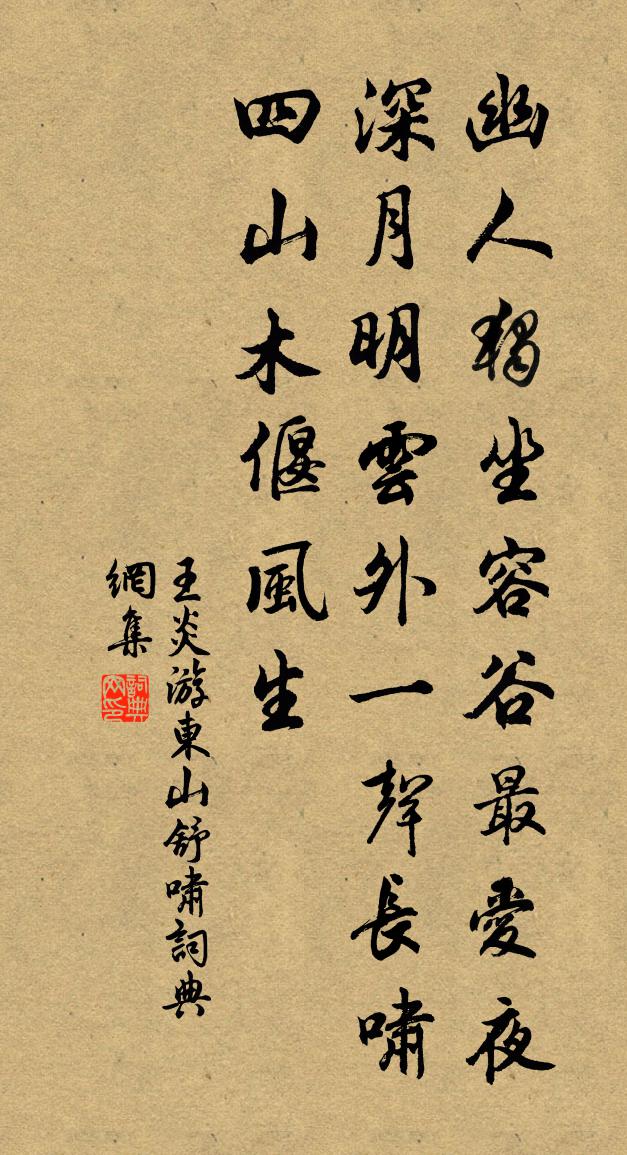 幽人獨坐容谷最愛夜
深月明雲外一聲長嘯
四山木偃風生
王炎游東山舒嘯詞典
網集
詞典
网印